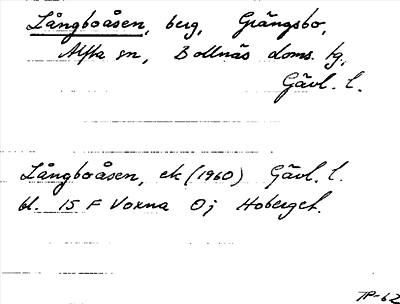 Långboåsen, berg, Grängsbo,
Alfta sn, Bollnäs doms. tg,
Gävl. l.
Långboåsen, ek (1960) Gävl. l.
bl. 15 F Voxna 0j Hoberget.
TP-62